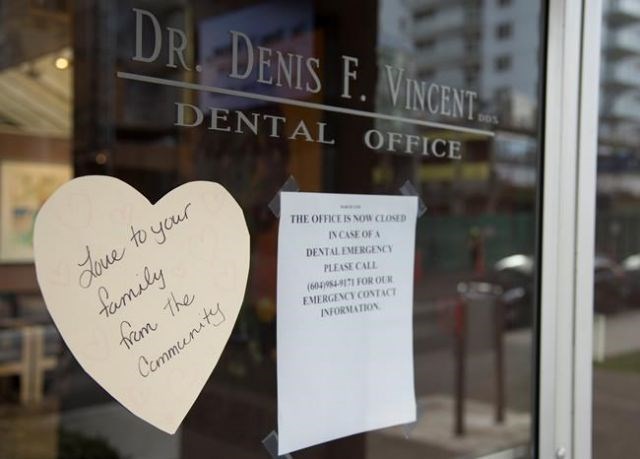 DR. DENIS F. VINCENT, DDS
DENTAL OFFICE
Love to your
family
from the
Community
THE OFFICE IS NOW CLOSED
IN CASE OF A
DENTAL EMERGENCY
PLEASE CALL
(604)984-9171 FOR OUR
EMERGENCY CONTACT
INFORMATION.